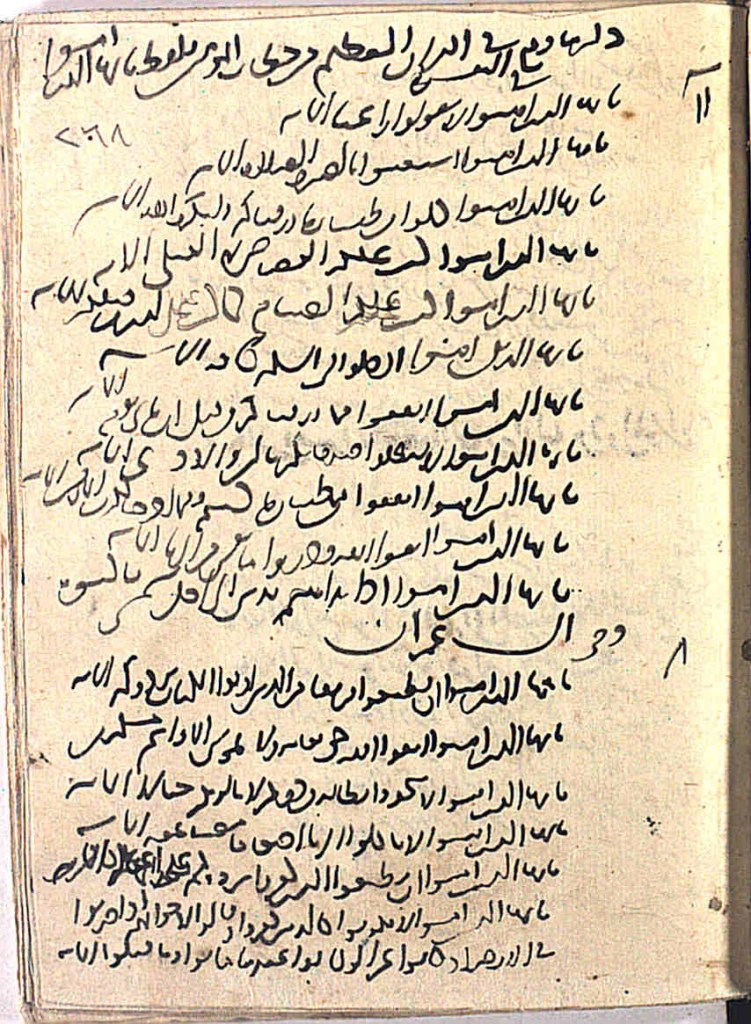 ذكر ما وقع في القرآن العظيم من خطاب المؤمنين بلفظ يا ايها الذين امنوا
في البقرة ١١
يا ايها الذين امنوا لا تقولوا راعنا الاية
٢٦٨
يا ايها الذين امنوا استعينوا بالصبر والصلاة الاية
يا ايها الذين امنوا كلوا من طيبات ما رزقناكم واشكروا لله الاية
يا ايها الذين امنوا كتب عليكم القصاص في القتلى الاية
يا ايها الذين امنوا كتب عليكم الصيام كما كتب على الذين من قبلكم الاية
يا ايها الذين امنوا ادخلوا في السلم كافة الاية
يا ايها الذين امنوا انفقوا مما رزقناكم من قبل ان ياتي يوم الاية
يا ايها الذين امنوا لا تبطلوا صدقاتكم بالمن والاذى الاية
يا ايها الذين امنوا انفقوا من طيبات ما كسبتم ومما اخرجنا لكم من الارض الاية
يا ايها الذين امنوا اتقوا الله وذروا ما بقي من الربا الاية
يا ايها الذين امنوا اذا تداينتم بدين الى اجل مسمى فاكتبوه
وفي ال عمران ٨
يا ايها الذين امنوا ان تطيعوا فريقا من الذين اوتوا الكتاب يردوكم الاية
يا ايها الذين امنوا اتقوا الله حق تقاته ولا تموتن الا وانتم مسلمون
يا ايها الذين امنوا لا تتخذوا بطانة من دونكم لا يالونكم خبالا الاية
يا ايها الذين امنوا لا تاكلوا الربا اضعافا مضاعفة الاية
يا ايها الذين امنوا ان تطيعوا الذين كفروا يردوكم على اعقابكم
يا ايها الذين امنوا لا تكونوا كالذين كفروا وقالوا لاخوانهم اذا ضربوا
في الارض او كانوا غزا لو كانوا عندنا ما ماتوا وما قتلوا الاية